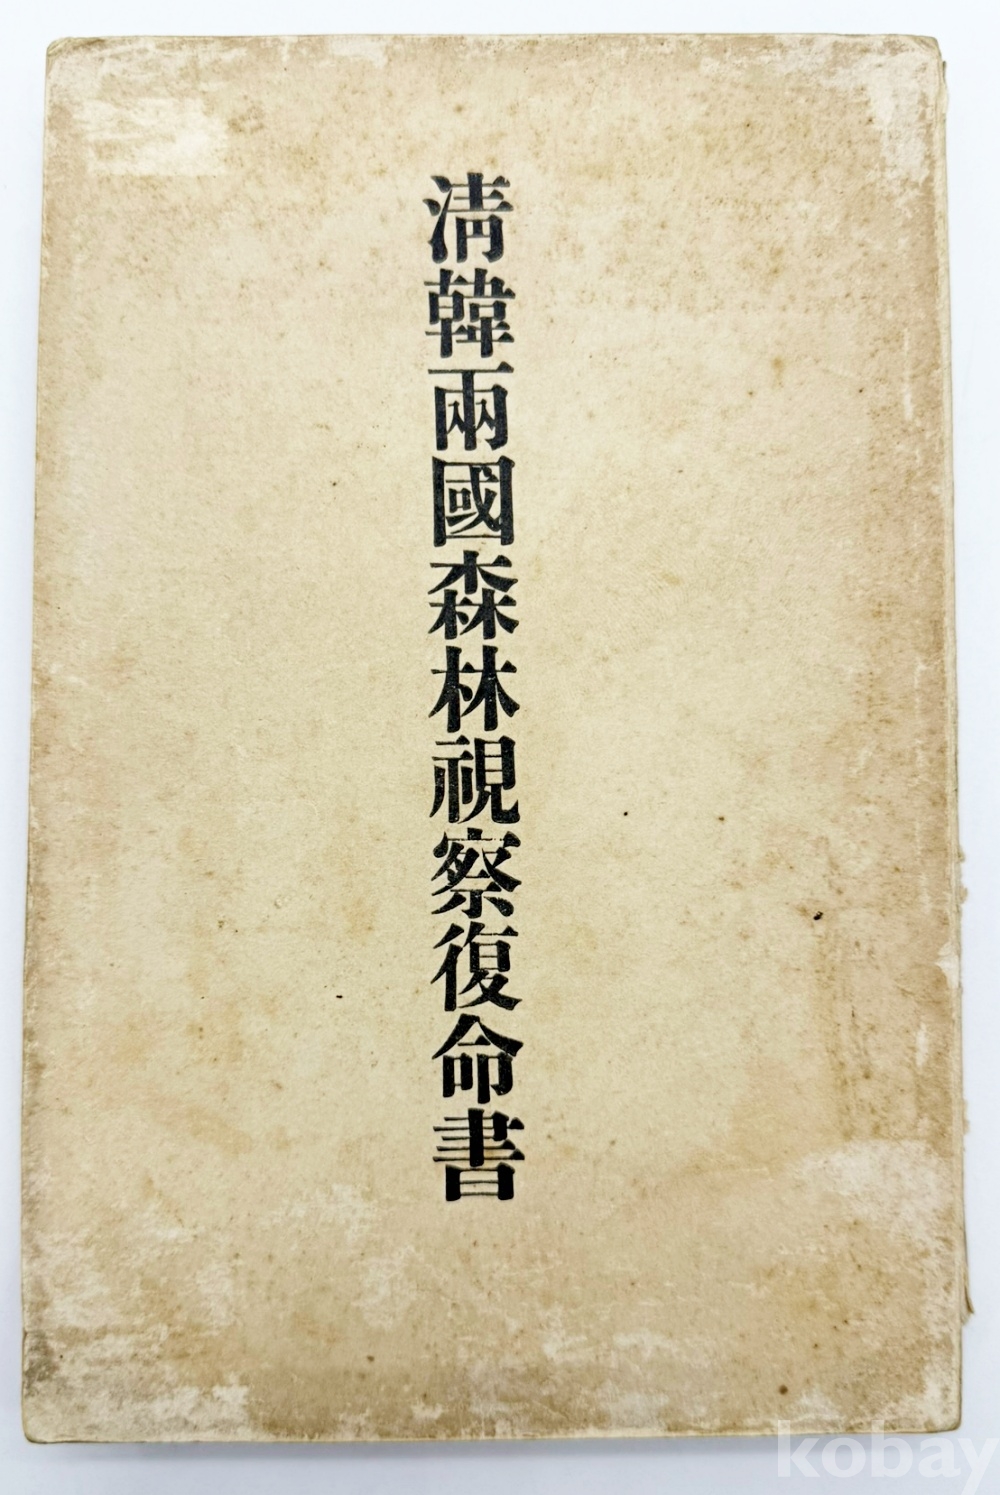 淸韓兩國森林視察復命書
kobay